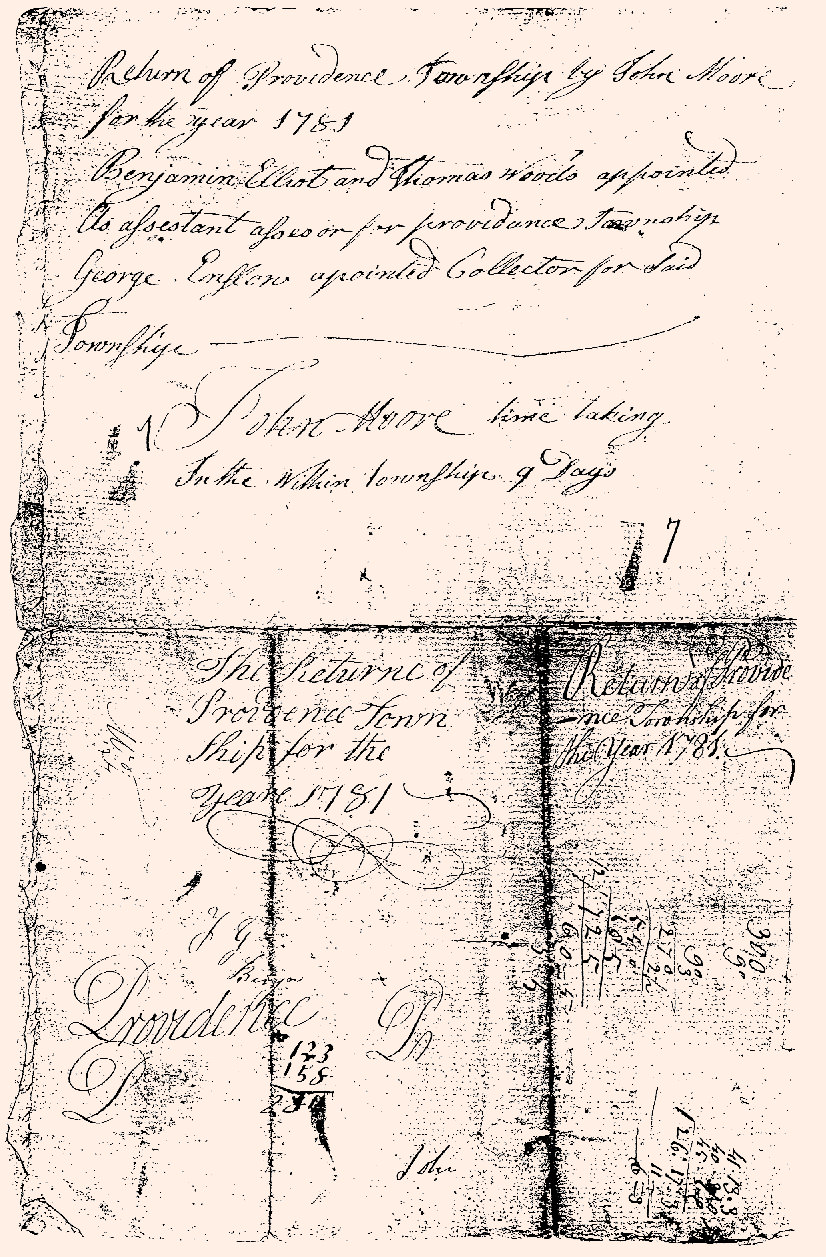 Return of Providence Township by John Moore
for the year 1781
Benjamin Elliot and Thomas Woods appointed
As assestant assesor for providance Township
George Enslow apointed Collector for Said
Township
John Moore time taking
In the Within township 9 Days
7
The Returne of
Providence Town
Ship for the
Yeare 1781
Return of Provide
-nce Township for
the Year 1781
300
90
90
3
270
725
60
J G
Benja
Providence
P
Pr
123
158
John